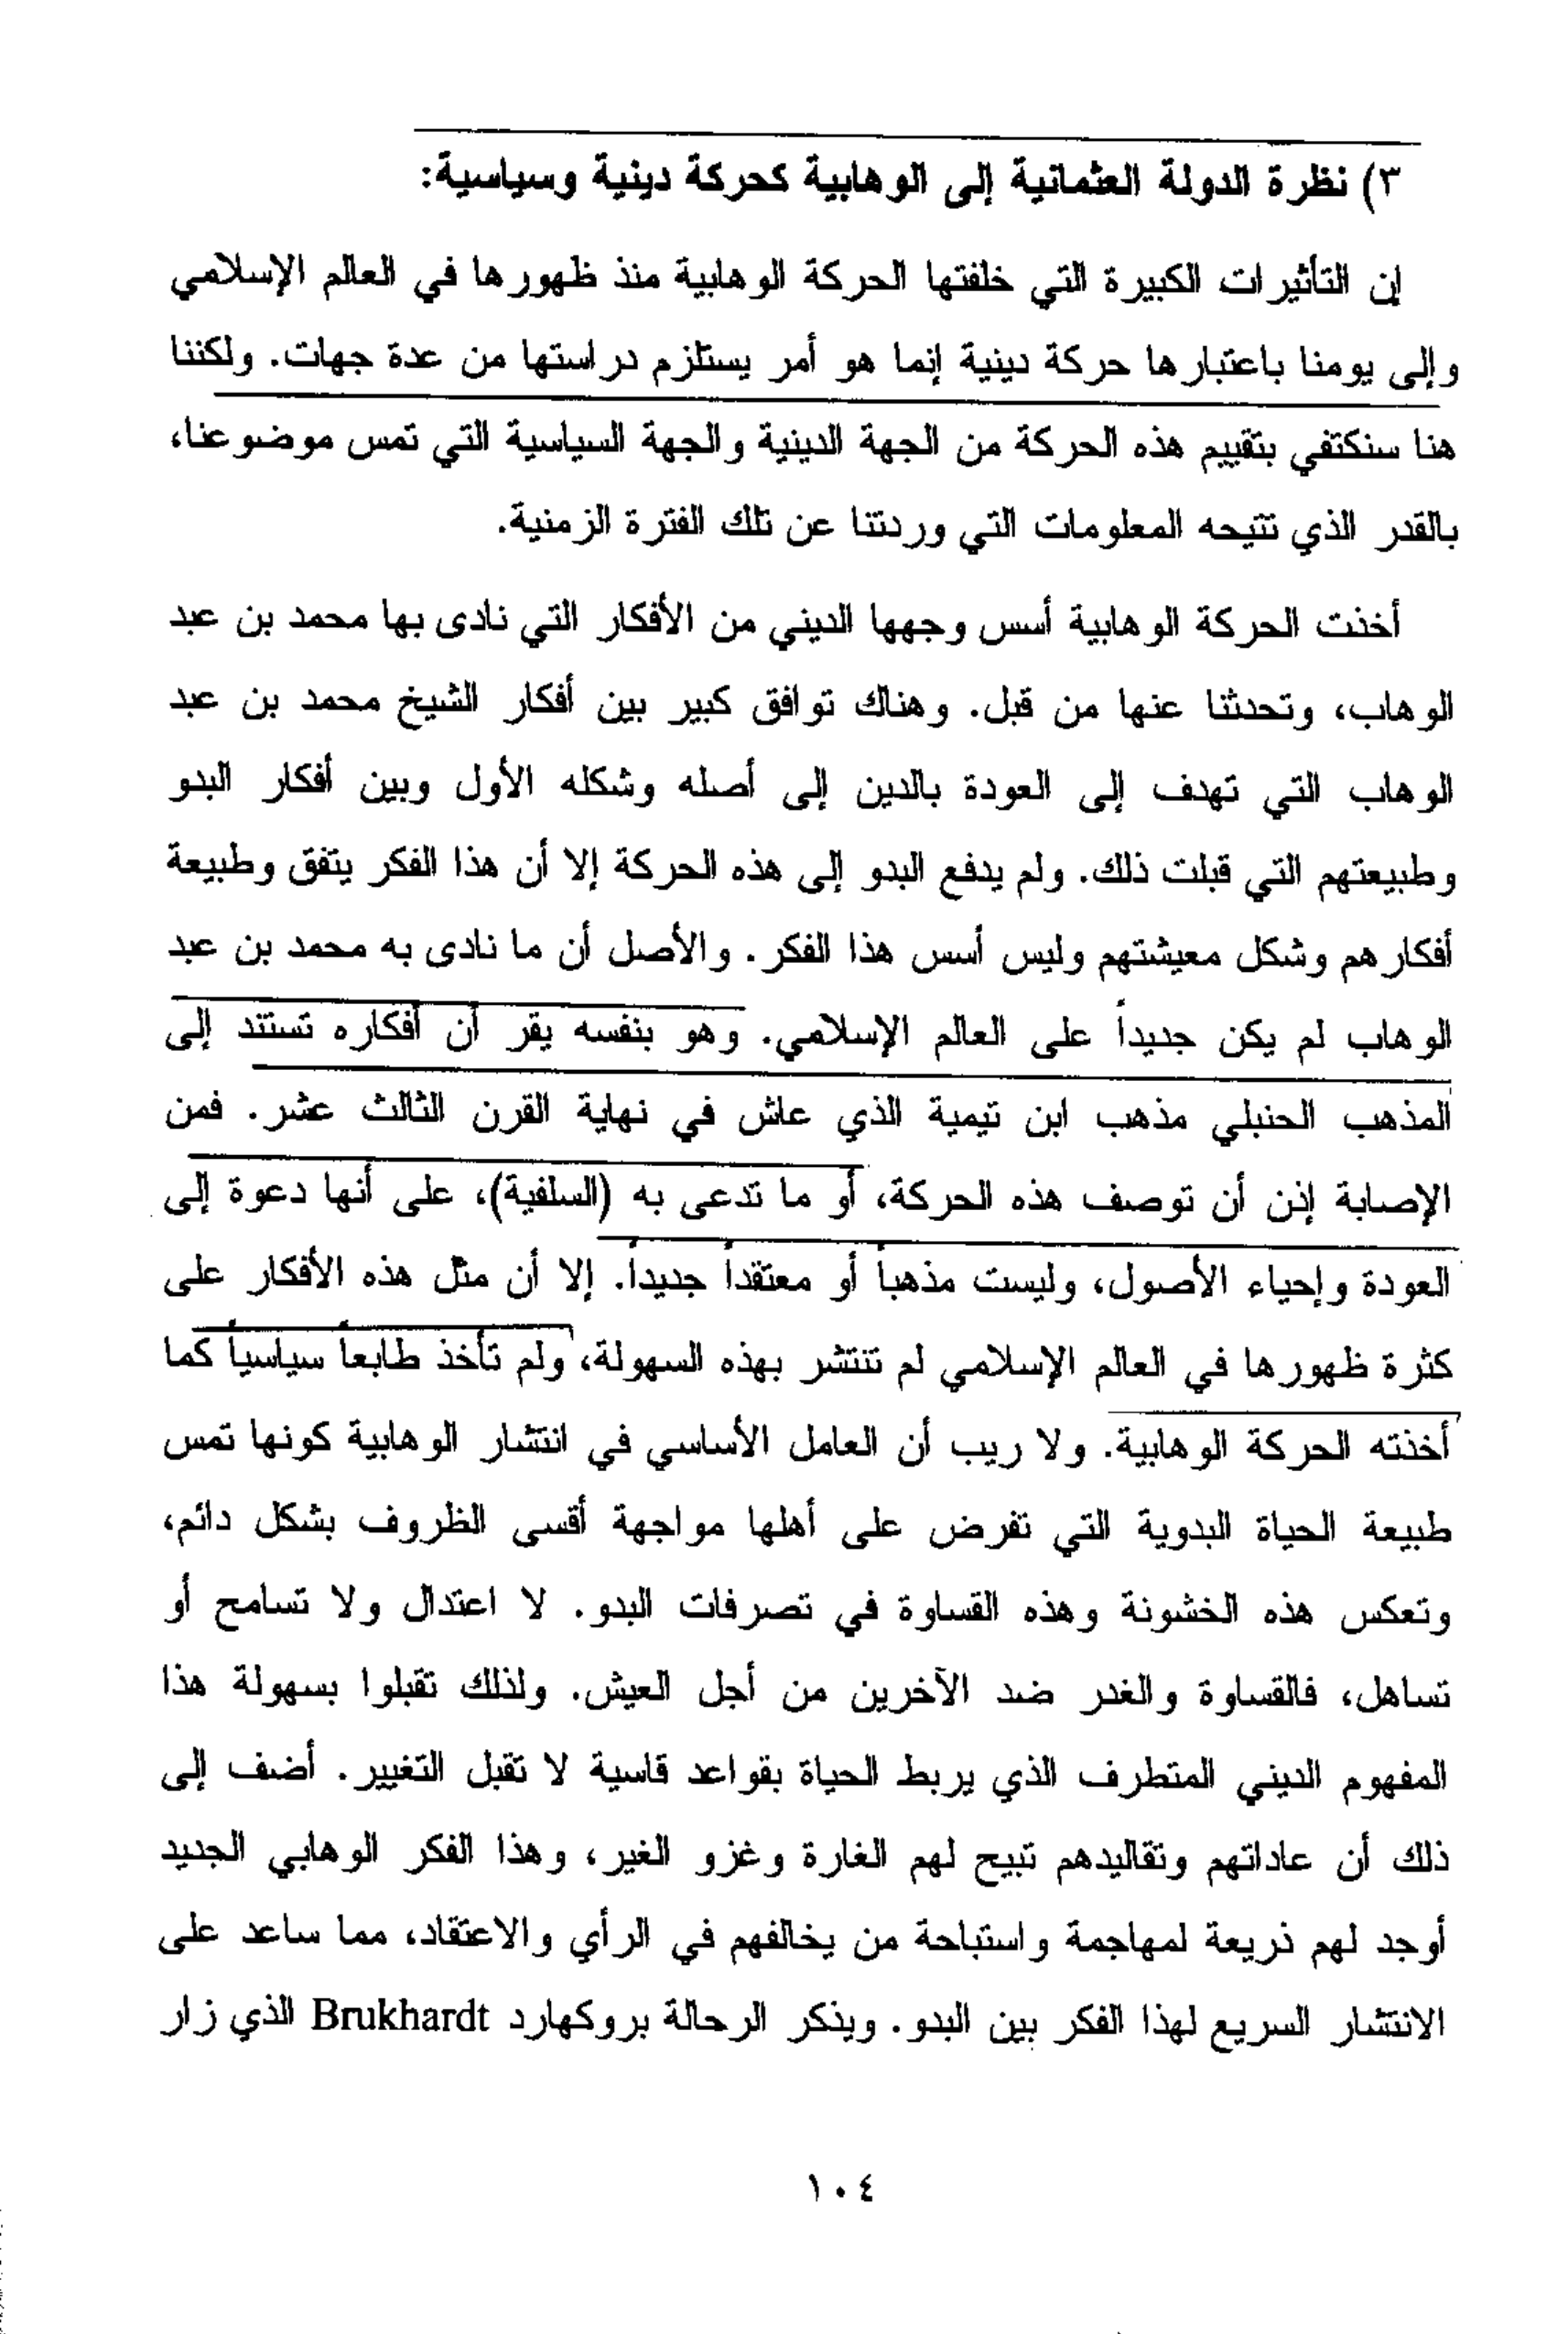 ٣) نظرة الدولة العثمانية إلى الوهابية كحركة دينية وسياسية:
إن التأثيرات الكبيرة التي خلفتها الحركة الوهابية منذ ظهورها في العالم الإسلامي
وإلى يومنا باعتبارها حركة دينية إنما هو أمر يستلزم دراستها من عدة جهات. ولكننا
هنا سنكتفي بتقييم هذه الحركة من الجهة الدينية والجهة السياسية التي تمس موضوعنا،
بالقدر الذي تتيحه المعلومات التي وردتنا عن تلك الفترة الزمنية.
أخذت الحركة الوهابية أسس وجهها الديني من الأفكار التي نادى بها محمد بن عبد
الوهاب، وتحدثنا عنها من قبل. وهناك توافق كبير بين أفكار الشيخ محمد بن عبد
الوهاب التي تهدف إلى العودة بالدين إلى أصله وشكله الأول وبين أفكار البدو
وطبيعتهم التي قبلت ذلك. ولم يدفع البدو إلى هذه الحركة إلا أن هذا الفكر يتفق وطبيعة
أفكارهم وشكل معيشتهم وليس أسس هذا الفكر. والأصل أن ما نادى به محمد بن عبد
الوهاب لم يكن جديداً على العالم الإسلامي. وهو بنفسه يقر أن أفكاره تستند إلى
المذهب الحنبلي مذهب ابن تيمية الذي عاش في نهاية القرن الثالث عشر. فمن
الإصابة إذن أن توصف هذه الحركة، أو ما تدعى به (السلفية)، على أنها دعوة إلى
العودة وإحياء الأصول، وليست مذهباً أو معتقداً جديداً. إلا أن مثل هذه الأفكار على
كثرة ظهورها في العالم الإسلامي لم تنتشر بهذه السهولة، ولم تأخذ طابعاً سياسياً كما
أخذته الحركة الوهابية. ولا ريب أن العامل الأساسي في انتشار الوهابية كونها تمس
طبيعة الحياة البدوية التي تفرض على أهلها مواجهة أقسى الظروف بشكل دائم،
وتعكس هذه الخشونة وهذه القساوة في تصرفات البدو. لا اعتدال ولا تسامح أو
تساهل، فالقساوة والغدر ضد الآخرين من أجل العيش. ولذلك تقبلوا بسهولة هذا
المفهوم الديني المتطرف الذي يربط الحياة بقواعد قاسية لا تقبل التغيير. أضف إلى
ذلك أن عاداتهم وتقاليدهم تبيح لهم الغارة وغزو الغير، وهذا الفكر الوهابي الجديد
أوجد لهم ذريعة لمهاجمة واستباحة من يخالفهم في الرأي والاعتقاد، مما ساعد على
الانتشار السريع لهذا الفكر بين البدو. ويذكر الرحالة بروكهارد Brukhardt الذي زار
١٠٤